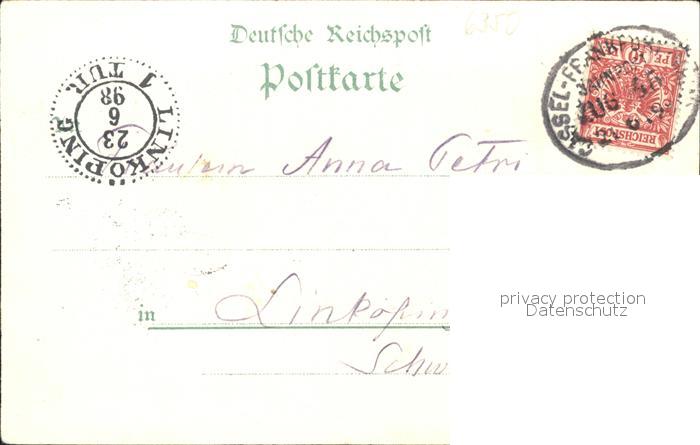 6350
Deutsche Reichspost
Postkarte
LINKÖPING
1 TUR
23
6
98
CASSEL-FRANKFURT
BAHNPOST
ZUG
REICHSPOST
10
Fräulein Anna Petri
in Linköping
Schw
privacy protection
Datenschutz